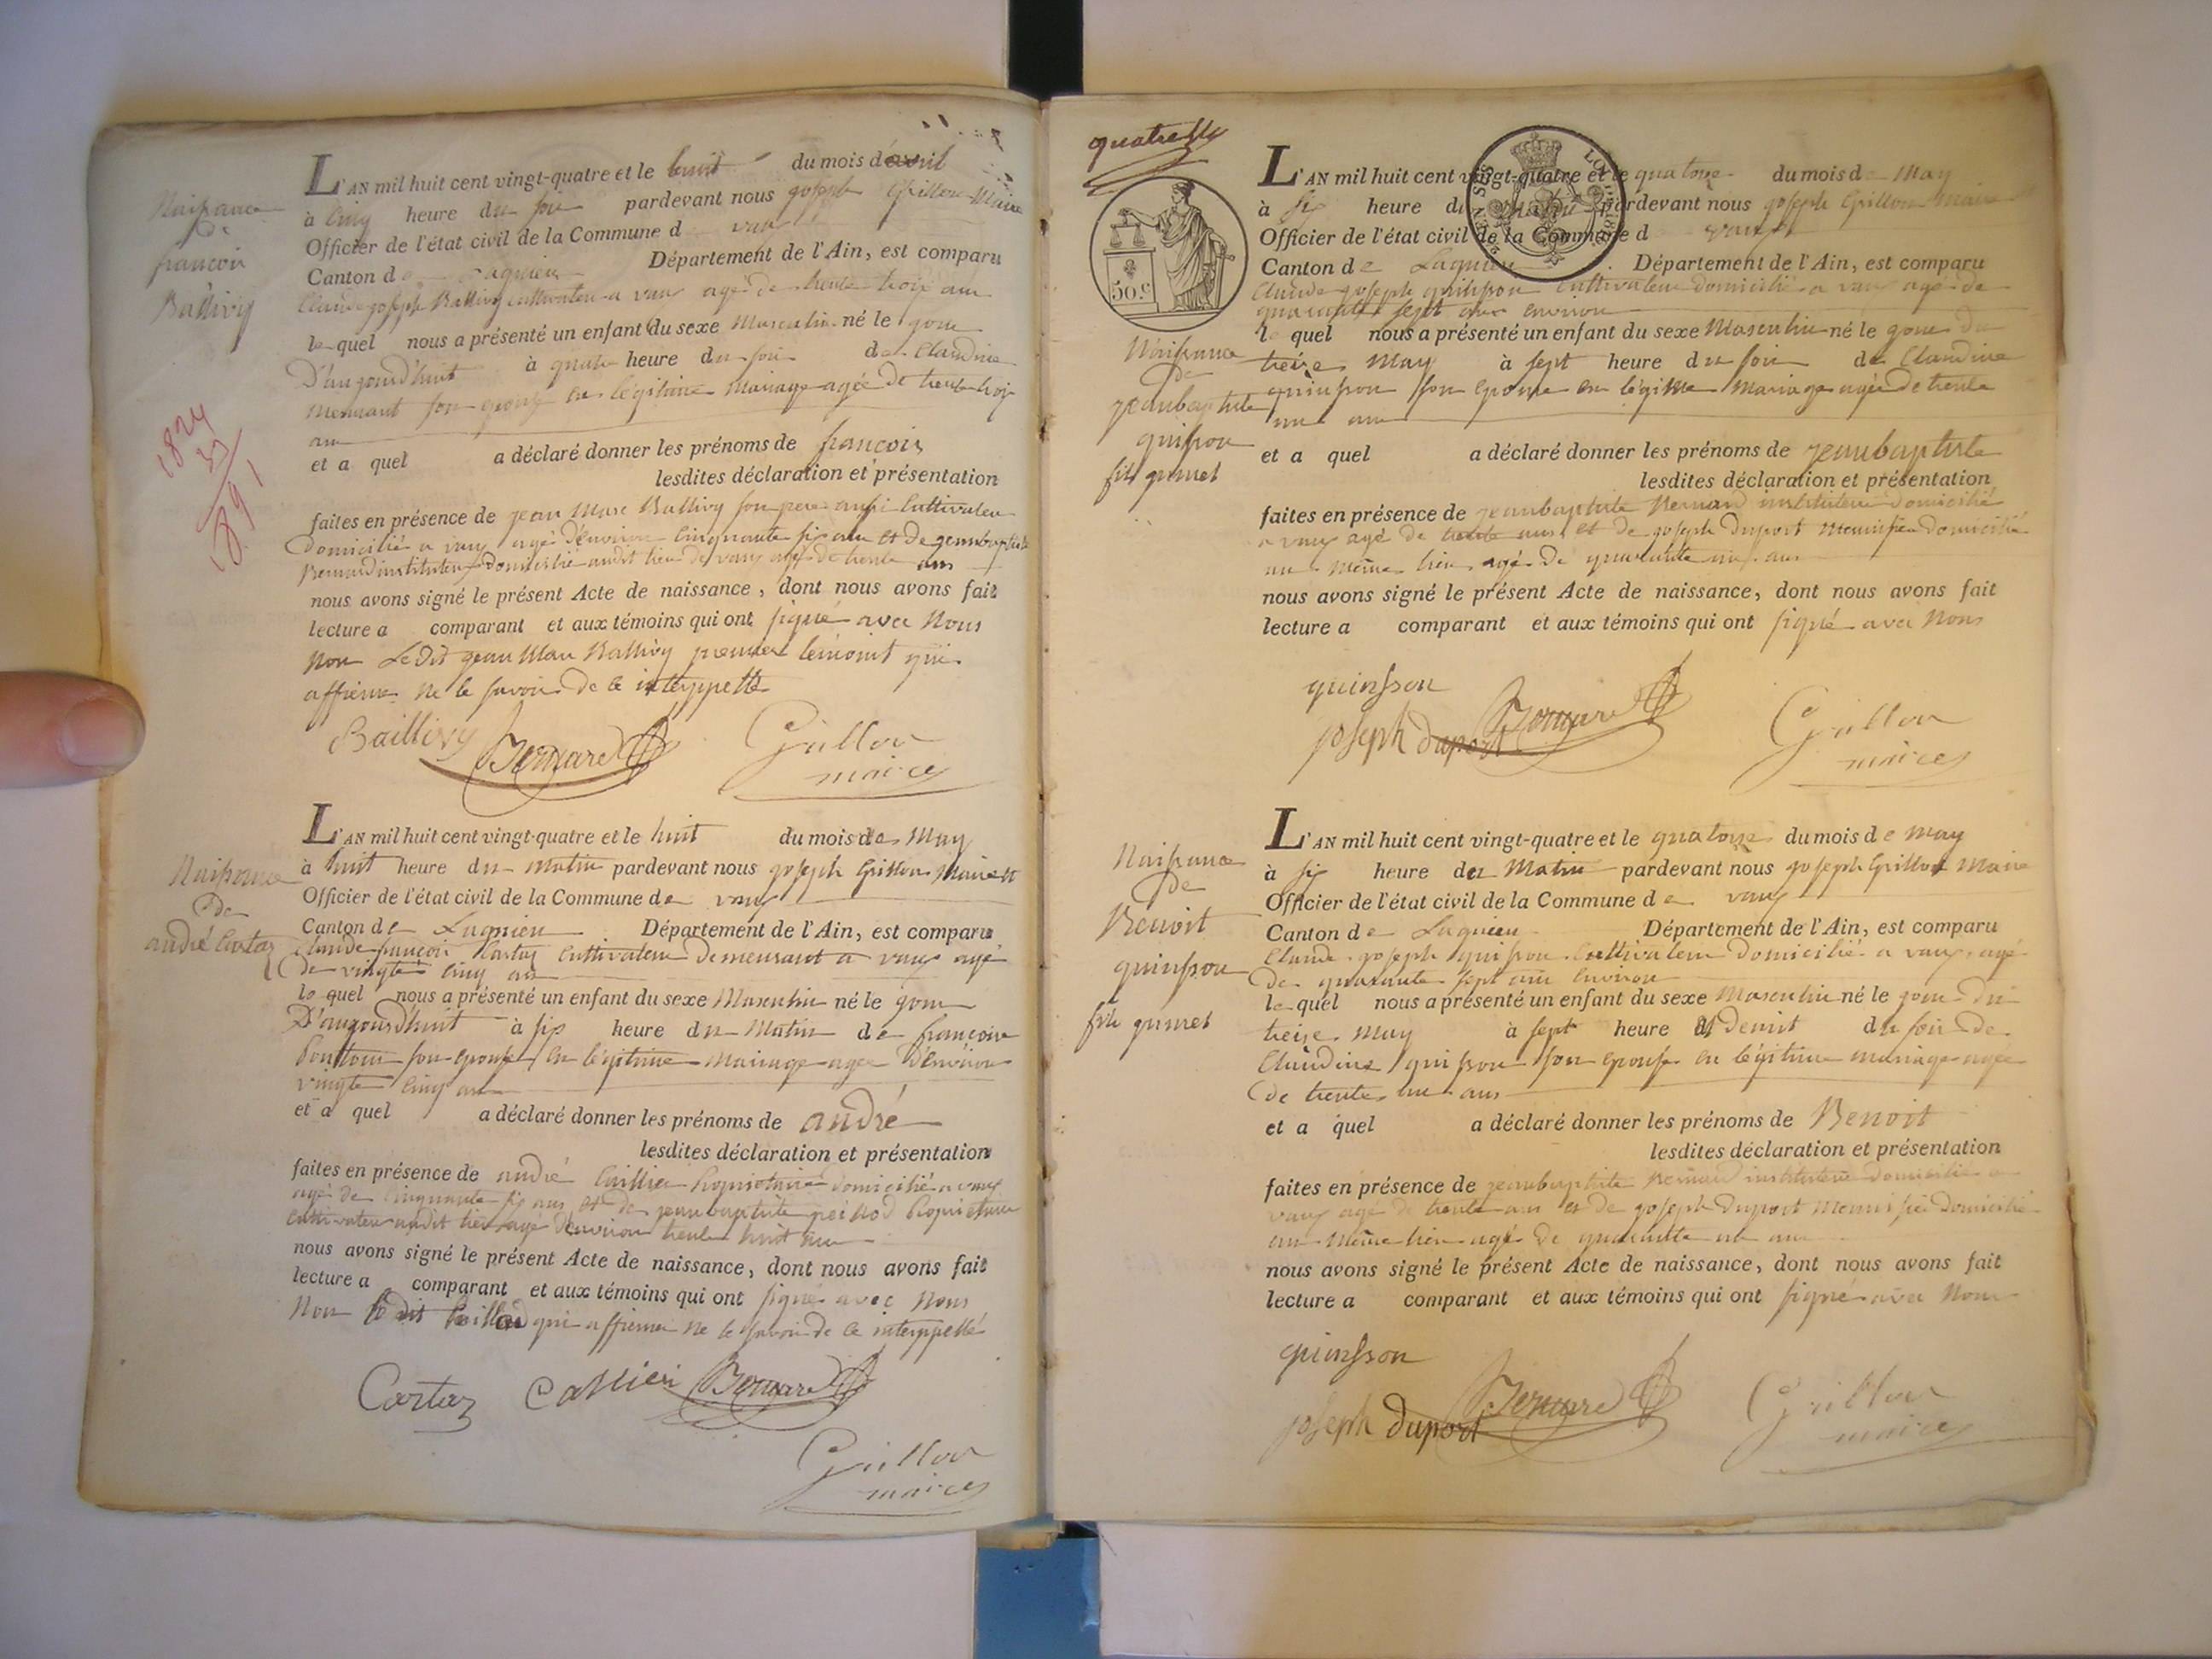 Naissance
de
francois
Ballivy
1824
33
1891
L'AN mil huit cent vingt-quatre et le huit du mois d'avril
à cinq heure du soir pardevant nous joseph Grillon Maire
Officier de l'état civil de la Commune d vaux
Canton de Lagnieu Département de l'Ain, est comparu
Claude joseph Ballivy cultivateur a vaux agé de trente trois ans
le quel nous a présenté un enfant du sexe Masculin né le jour
D'aujourd'huit à quatre heure du soir de Claudine
son epouse en légitime mariage agée de trente trois
ans
et a quel a déclaré donner les prénoms de francois
lesdites déclaration et présentation
faites en présence de jean Marc Ballivy son pere aussi Cultivateur
domicilié a vaux agé d'environ Cinquante six ans et de jeanbaptiste
Bernard instituteur domicilié audit lieu de vaux agé de trente ans
nous avons signé le présent Acte de naissance, dont nous avons fait
lecture a comparant et aux témoins qui ont signé avec Nous
Non Le Dit jean Marc Ballivy premier témoint qui
affirme ne le savoir de ce interppellé
Baillivy Bernard Grillon
maire
Naissance
de
andré Cartaz
L'AN mil huit cent vingt-quatre et le huit du mois de May
à huit heure du Matin pardevant nous joseph Grillon Maire et
Officier de l'état civil de la Commune de vaux
Canton de Lagnieu Département de l'Ain, est comparu
Claude francois Cartaz Cultivateur demeurant a vaux agé
de vingte cinq ans
le quel nous a présenté un enfant du sexe Masculin né le jour
D'aujourd'huit à six heure du Matin de francoise
son epouse en légitime mariage agée d'environ
vingte cinq ans
et a quel a déclaré donner les prénoms de andré
lesdites déclaration et présentation
faites en présence de andré Caillier Propriétaire domicilié a vaux
agé de Cinquante six ans et de jean baptiste Propriétaire
Cultivateur audit lieu agé d'environ trente huit ans
nous avons signé le présent Acte de naissance, dont nous avons fait
lecture a comparant et aux témoins qui ont signé avec Nous
Non le dit qui affirme ne le savoir de ce interppellé
Cartaz Callieri Bernard
Grillon
maire
quatre
50.c
Naissance
de
jeanbaptiste
quinsson
fils jumel
L'AN mil huit cent vingt-quatre et le quatorze du mois de May
à six heure du Matin pardevant nous joseph Grillon Maire
Officier de l'état civil de la Commune d vaux
Canton de Lagnieu Département de l'Ain, est comparu
Claude joseph quinsson Cultivateur domicilié a vaux agé de
quarante sept ans environ
le quel nous a présenté un enfant du sexe Masculin né le jour du
treize May à sept heure du soir de Claudine
quinsson son epouse en légitime Mariage agée de trente
une ans
et a quel a déclaré donner les prénoms de jeanbaptiste
lesdites déclaration et présentation
faites en présence de jeanbaptiste Bernard instituteur domicilié
a vaux agé de trente ans et de joseph duport Menuisier domicilié
au même lieu agé de quarante un ans
nous avons signé le présent Acte de naissance, dont nous avons fait
lecture a comparant et aux témoins qui ont signé avec Nous
quinsson
joseph duport Bernard Grillon
maire
Naissance
de
Benoit
quinsson
fils jumel
L'AN mil huit cent vingt-quatre et le quatorze du mois de May
à six heure du Matin pardevant nous joseph Grillon Maire
Officier de l'état civil de la Commune de vaux
Canton de Lagnieu Département de l'Ain, est comparu
Claude joseph quinsson Cultivateur domicilié a vaux agé
de quarante sept ans environ
le quel nous a présenté un enfant du sexe Masculin né le jour du
treize May à sept heure et Demit du soir de
Claudine quinsson son epouse en légitime mariage agée
de trente une ans
et a quel a déclaré donner les prénoms de Benoit
lesdites déclaration et présentation
faites en présence de jeanbaptiste Bernard instituteur domicilié a
vaux agé de trente ans et de joseph duport Menuisier domicilié
au même lieu agé de quarante un ans
nous avons signé le présent Acte de naissance, dont nous avons fait
lecture a comparant et aux témoins qui ont signé avec Nous
quinsson
joseph duport Bernard Grillon
maire